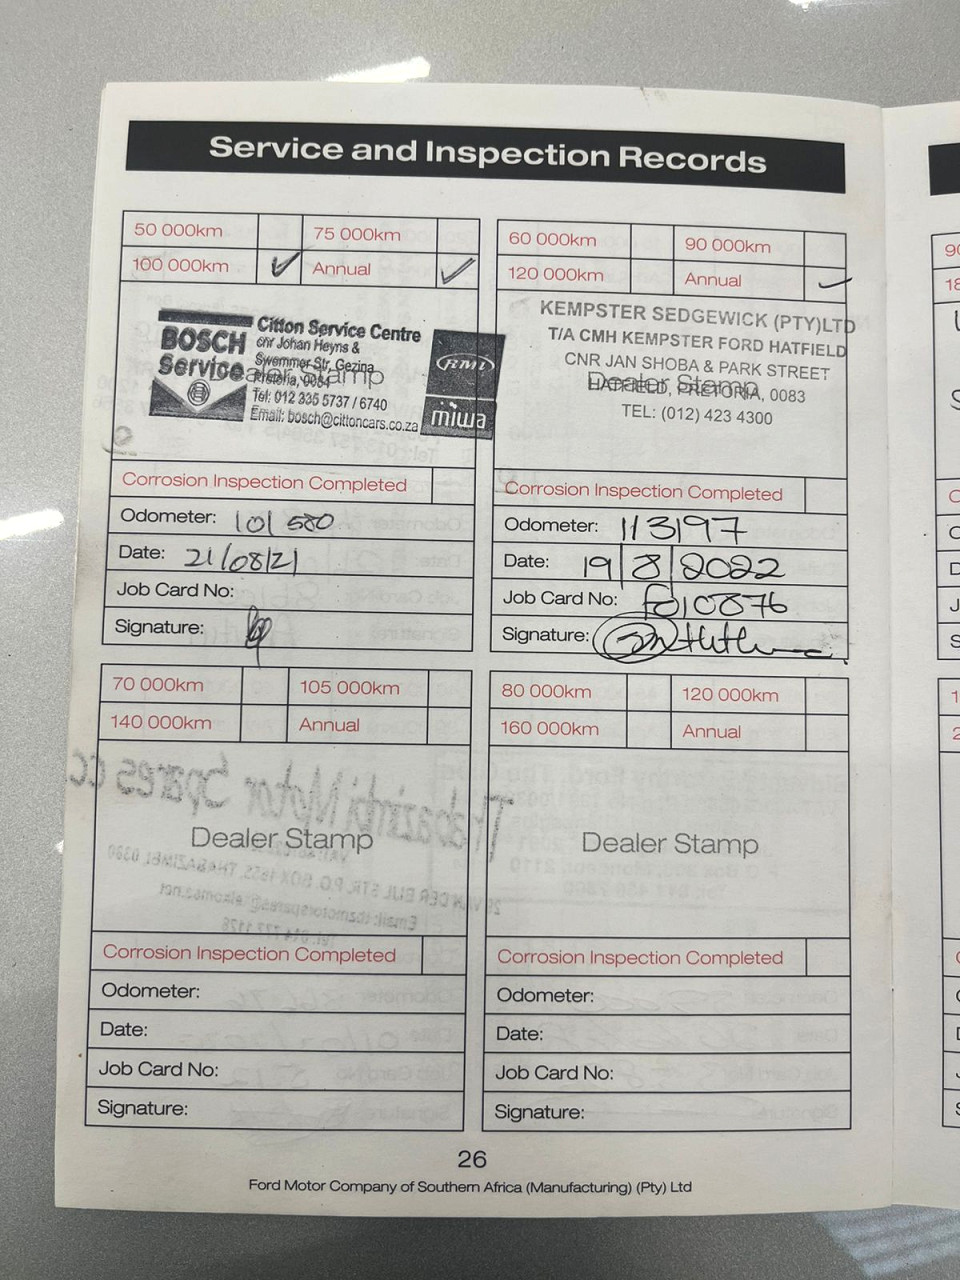 Service and Inspection Records
50 000km 75 000km
100 000km ✓ Annual ✓
BOSCH
Service
Citton Service Centre
cnr Johan Heyns &
Swemmer Str, Gezina
Pretoria, 0084
Tel: 012 335 5737 / 6740
Email: bosch@cittoncars.co.za
RMI
miwa
Dealer Stamp
Corrosion Inspection Completed
Odometer: 101 580
Date: 21/08/21
Job Card No:
Signature:
60 000km 90 000km
120 000km Annual ✓
KEMPSTER SEDGEWICK (PTY)LTD
T/A CMH KEMPSTER FORD HATFIELD
CNR JAN SHOBA & PARK STREET
HATFIELD, PRETORIA, 0083
TEL: (012) 423 4300
Dealer Stamp
Corrosion Inspection Completed
Odometer: 113197
Date: 19/8/2022
Job Card No: f010876
Signature:
70 000km 105 000km
140 000km Annual
Dealer Stamp
Corrosion Inspection Completed
Odometer:
Date:
Job Card No:
Signature:
80 000km 120 000km
160 000km Annual
Dealer Stamp
Corrosion Inspection Completed
Odometer:
Date:
Job Card No:
Signature:
26
Ford Motor Company of Southern Africa (Manufacturing) (Pty) Ltd